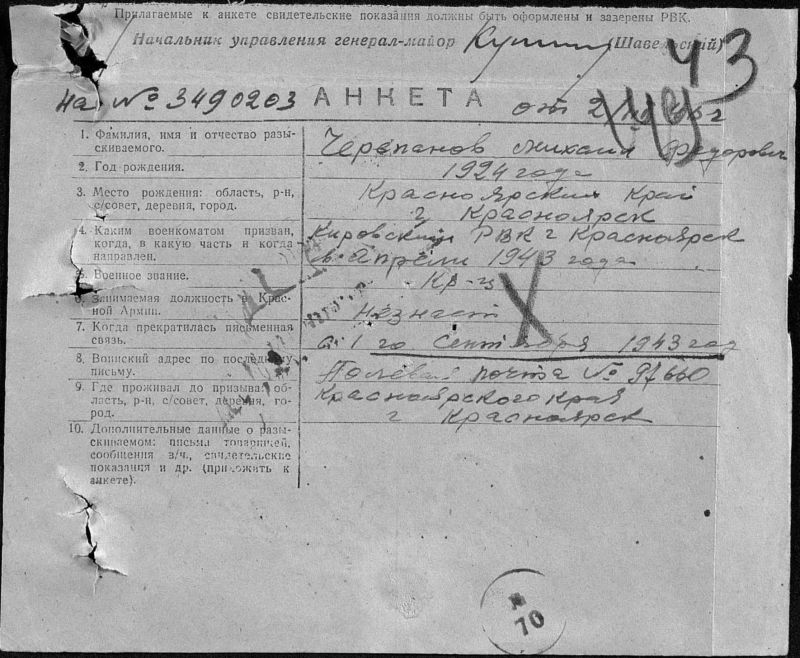 Прилагаемые к анкете свидетельские показания должны быть оформлены и заверены РВК.
Начальник управления генерал-майор (Шавельский)
43
на № 3490203 АНКЕТА от
1. Фамилия, имя и отчество разыскиваемого.
Черепанов Михаил Федорович
2. Год рождения.
1924 года
3. Место рождения: область, р-н, с/совет, деревня, город.
Красноярский Край
г Красноярск
4. Каким военкоматом призван, когда, в какую часть и когда направлен.
Кировским РВК г Красноярск
в Апрели 1943 года
5. Военное звание.
Кр-ц
6. Занимаемая должность в Красной Армии.
Незнаем
7. Когда прекратилась письменная связь.
с 1 го Сентября 1943 год
8. Воинский адрес по последнему письму.
Полевая почта № 97660
9. Где проживал до призыва: область, р-н, с/совет, деревня, город.
Красноярского края
г Красноярск
10. Дополнительные данные о разыскиваемом: письма товарищей, сообщения в/ч., свидетельские показания и др. (приложить к анкете).
70